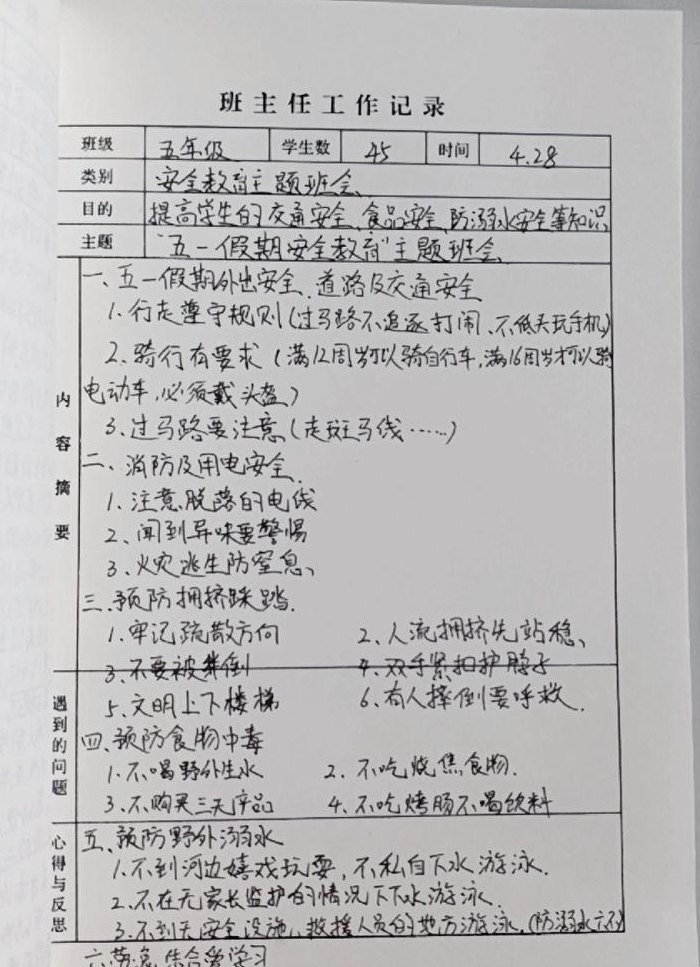 班主任工作记录
班级 五年级 学生数 45 时间 4.28
类别 安全教育主题班会
目的 提高学生的交通安全、食品安全、防溺水安全等知识
主题 "五一假期安全教育"主题班会
内容摘要
一、五一假期外出安全、道路及交通安全
1.行走遵守规则(过马路不追逐打闹、不低头玩手机)
2.骑行有要求(满12周岁可以骑自行车,满16周岁才可以骑
电动车,必须戴头盔)
3、过马路要注意(走斑马线……)
二、消防及用电安全
1、注意脱落的电线
2、闻到异味要警惕
3、火灾逃生防窒息、
三、预防拥挤踩踏
1.牢记疏散方向 2、人流拥挤先站稳、
3、不要被挤倒 4、双手紧扣护脖子
5、文明上下楼梯 6.有人摔倒要呼救.
遇到的问题
四、预防食物中毒
1.不喝野外生水 2、不吃烧焦食物.
3、不购买三无产品 4、不吃烤肠不喝饮料
心得与反思
五、预防野外溺水
1.不到河边嬉戏玩耍,不私自下水游泳.
2.不在无家长监护的情况下下水游泳.
3.不到无安全设施、救援人员的地方游泳.(防溺水六不)